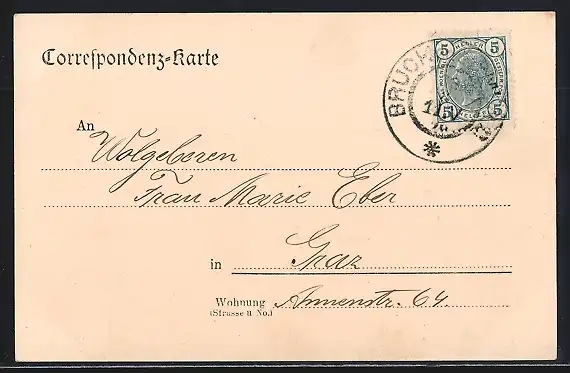 Correspondenz-Karte
5 5
5 5
BRUCK
An
Wolgeboren
Frau Marie Eber
in Graz
Wohnung Annenstr. 64.
(Strasse u No.)